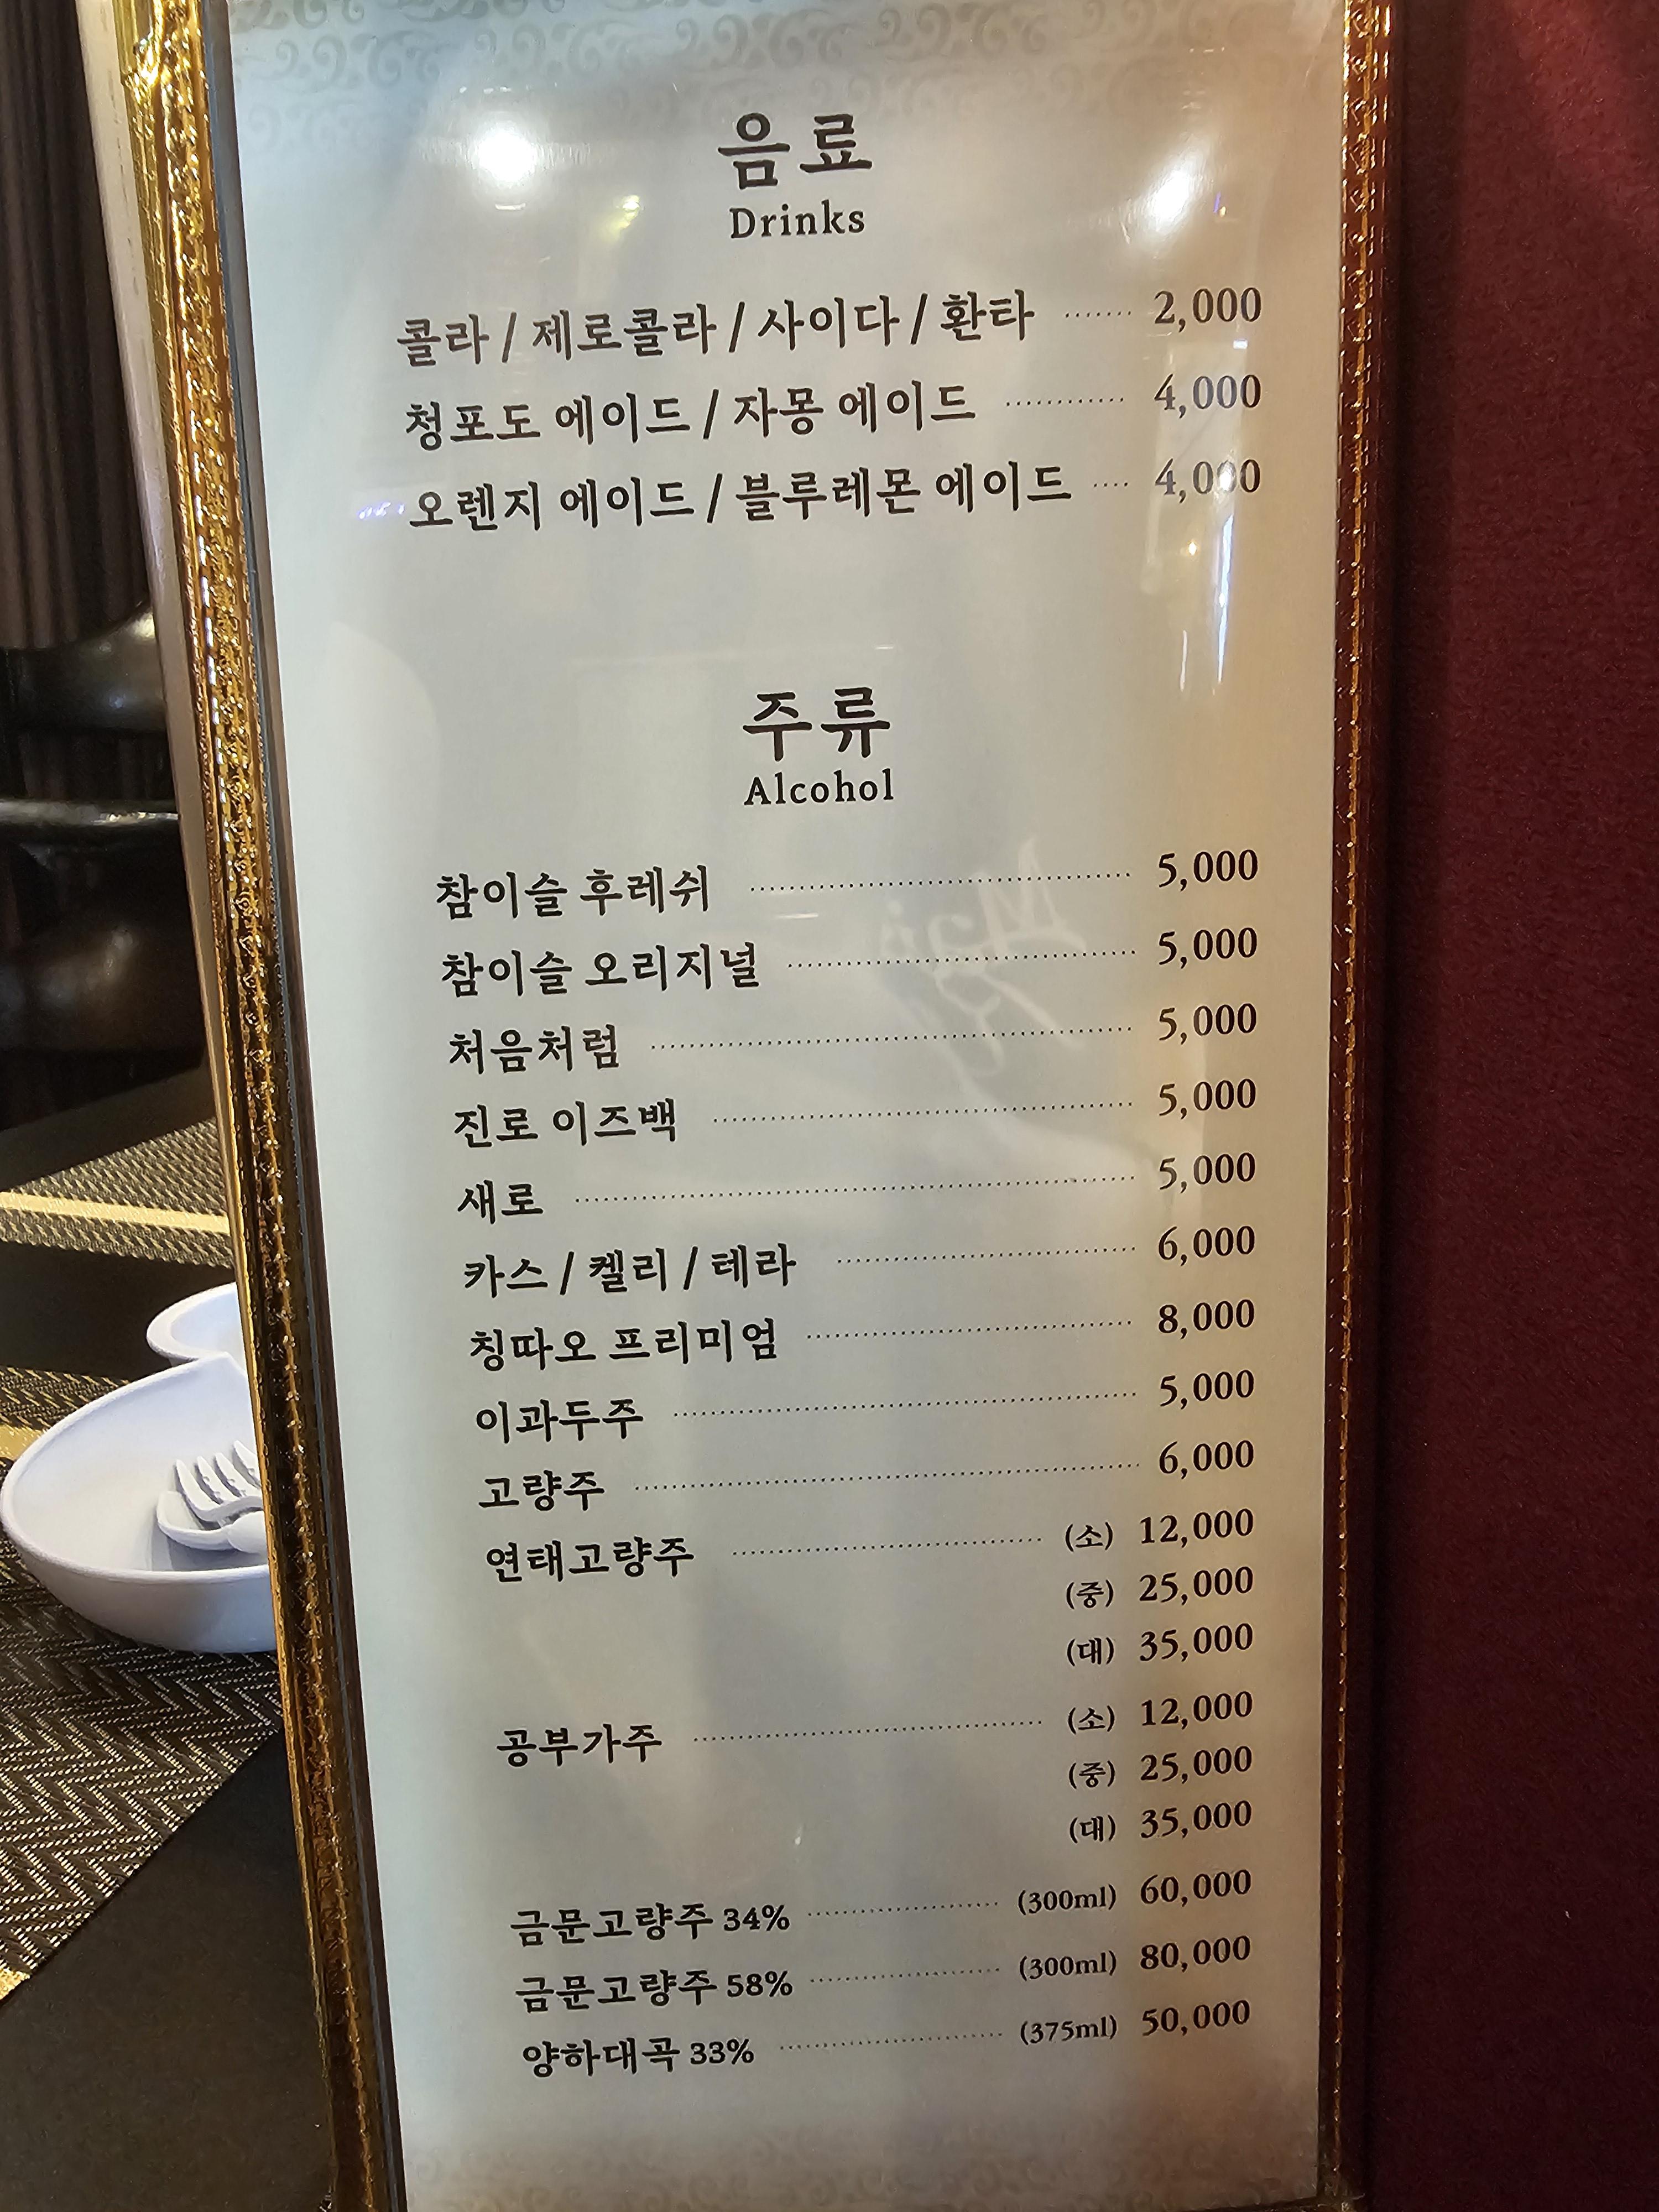 음료
Drinks
콜라 / 제로콜라 / 사이다 / 환타 ······· 2,000
청포도 에이드 / 자몽 에이드 ············ 4,000
오렌지 에이드 / 블루레몬 에이드 ···· 4,000
주류
Alcohol
참이슬 후레쉬 ········ 5,000
참이슬 오리지널 ········ 5,000
처음처럼 ········ 5,000
진로 이즈백 ········ 5,000
새로 ········ 5,000
카스 / 켈리 / 테라 ········ 6,000
칭따오 프리미엄 ········ 8,000
이과두주 ········ 5,000
고량주 ········ 6,000
연태고량주 ········ (소) 12,000
(중) 25,000
(대) 35,000
공부가주 ········ (소) 12,000
(중) 25,000
(대) 35,000
금문고량주 34% ········ (300ml) 60,000
금문고량주 58% ········ (300ml) 80,000
양하대곡 33% ········ (375ml) 50,000